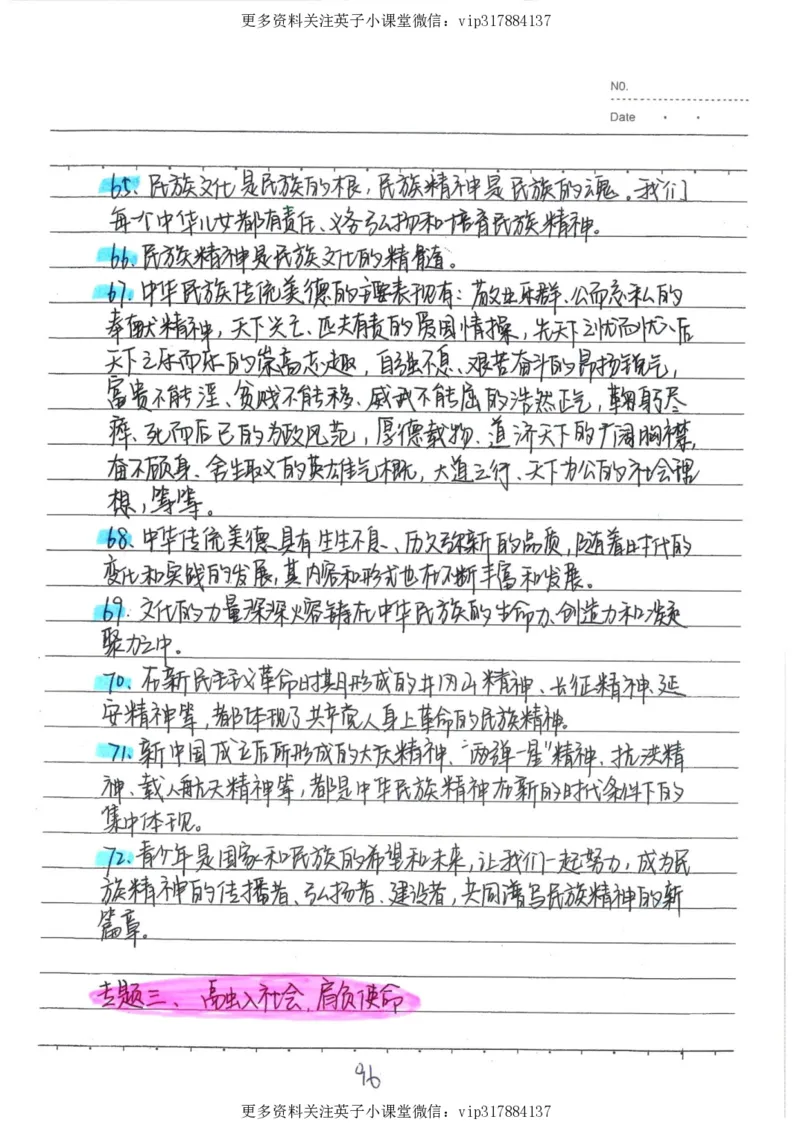 更多资料关注英子小课堂微信：vip317884137
NO.
Date
65、民族文化是民族的根，民族精神是民族的魂。我们
每个中华儿女都有责任、义务弘扬和培育民族精神。
66、民族精神是民族文化的精髓。
67、中华民族传统美德的主要表现有：敬业乐群、公而忘私的
奉献精神，天下兴亡、匹夫有责的爱国情操，先天下之忧而忧、后
天下之乐而乐的崇高志趣，自强不息、艰苦奋斗的昂扬锐气，
富贵不能淫、贫贱不能移、威武不能屈的浩然正气，鞠躬尽
瘁、死而后已的为政风范，厚德载物、道济天下的广阔胸襟，
奋不顾身、舍生取义的英雄气概，大道之行、天下为公的社会理
想，等等。
68、中华传统美德具有生生不息、历久弥新的品质，随着时代的
变化和实践的发展，其内容和形式也在不断丰富和发展。
69、文化的力量深深熔铸在中华民族的生命力、创造力和凝
聚力之中。
70、在新民主主义革命时期形成的井冈山精神、长征精神、延
安精神等，都体现了共产党人身上革命的民族精神。
71、新中国成立后所形成的大庆精神、“两弹一星”精神、抗洪精
神、载人航天精神等，都是中华民族精神在新的时代条件下的
集中体现。
72、青少年是国家和民族的希望和未来，让我们一起努力，成为民
族精神的传播者、弘扬者、建设者，共同谱写民族精神的新
篇章。
专题三、融入社会，肩负使命
96
更多资料关注英子小课堂微信：vip317884137